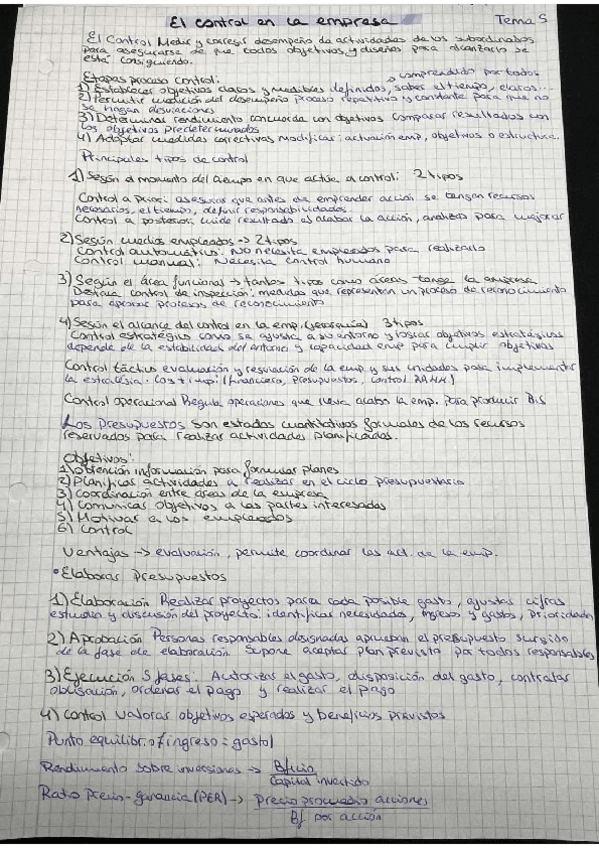 El control en la empresa Tema 5
El Control Medir y corregir desempeño de actividades de los subordinados
para asegurarse de que todos objetivos y diseños para alcanzarlo se
está consiguiendo.
Etapas proceso control: → comprendido por todos
1) Establecer objetivos claros y medibles definidos, saber el tiempo, claros...
2) Permitir medición del desempeño proceso repetitivo y constante para que no
se hagan desviaciones
3) Determinar rendimiento concuerda con objetivos comparar resultados con
los objetivos predeterminados
4) Adoptar medidas correctivas modificar: actuación emp, objetivos o estructura.
Principales tipos de control
1) Según el momento del tiempo en que actúe a control: 2 tipos
Control a priori: asegurar que antes de emprender acción se tengan recursos
necesarios, el tiempo, definir responsabilidades
Control a posteriori: mide resultado al acabar la acción, analizar para mejorar
2) Según medios empleados → 2 tipos
Control automático: No necesita empleados para realizarlo
Control manual: Necesita control humano
3) Según el área funcional → tantos tipos como áreas tenga la empresa
Destaca control de inspección: medidas que representan un proceso de reconocimiento
para aprobar procesos de reconocimiento
4) Según el alcance del control en la emp. (jerarquía) 3 tipos
Control estratégico como se ajusta a su entorno y lograr objetivos estratégicos
depende de la estabilidad del entorno y capacidad emp para cumplir objetivos
Control táctico evaluación y regulación de la emp y sus unidades para implementar
la estrategia. (financiero, presupuestos, control RRHH)
Control operacional Regula operaciones que lleva a cabo la emp. para producir B/S
Los presupuestos son estados cuantitativos formales de los recursos
reservados para realizar actividades planificadas.
Objetivos:
1) Obtención información para formular planes
2) Planificar actividades a realizar en el ciclo presupuestario
3) Coordinación entre áreas de la empresa
4) Comunicar objetivos a las partes interesadas
5) Motivar a los empleados
6) Control
Ventajas → evaluación, permite coordinar las act. de la emp.
• Elaborar presupuestos
1) Elaboración Realizar proyectos para cada posible gasto, ajustar cifras
estudio y discusión del proyecto: identificar necesidades, ingreso y gastos, prioridades
2) Aprobación Personas responsables designadas aprueban el presupuesto surgido
de la fase de elaboración Supone aceptar plan previsto por todos responsables
3) Ejecución 5 fases: Autorizar el gasto, disposición del gasto, contratar
obligación, ordenar el pago y realizar el pago
4) Control valorar objetivos esperados y beneficios previstos
Punto equilibrio / ingreso = gasto /
Rendimiento sobre inversiones → B/ficio
Capital invertido
Ratio Precio-ganancia (PER) → Precio promedio acciones
Bf. por acción